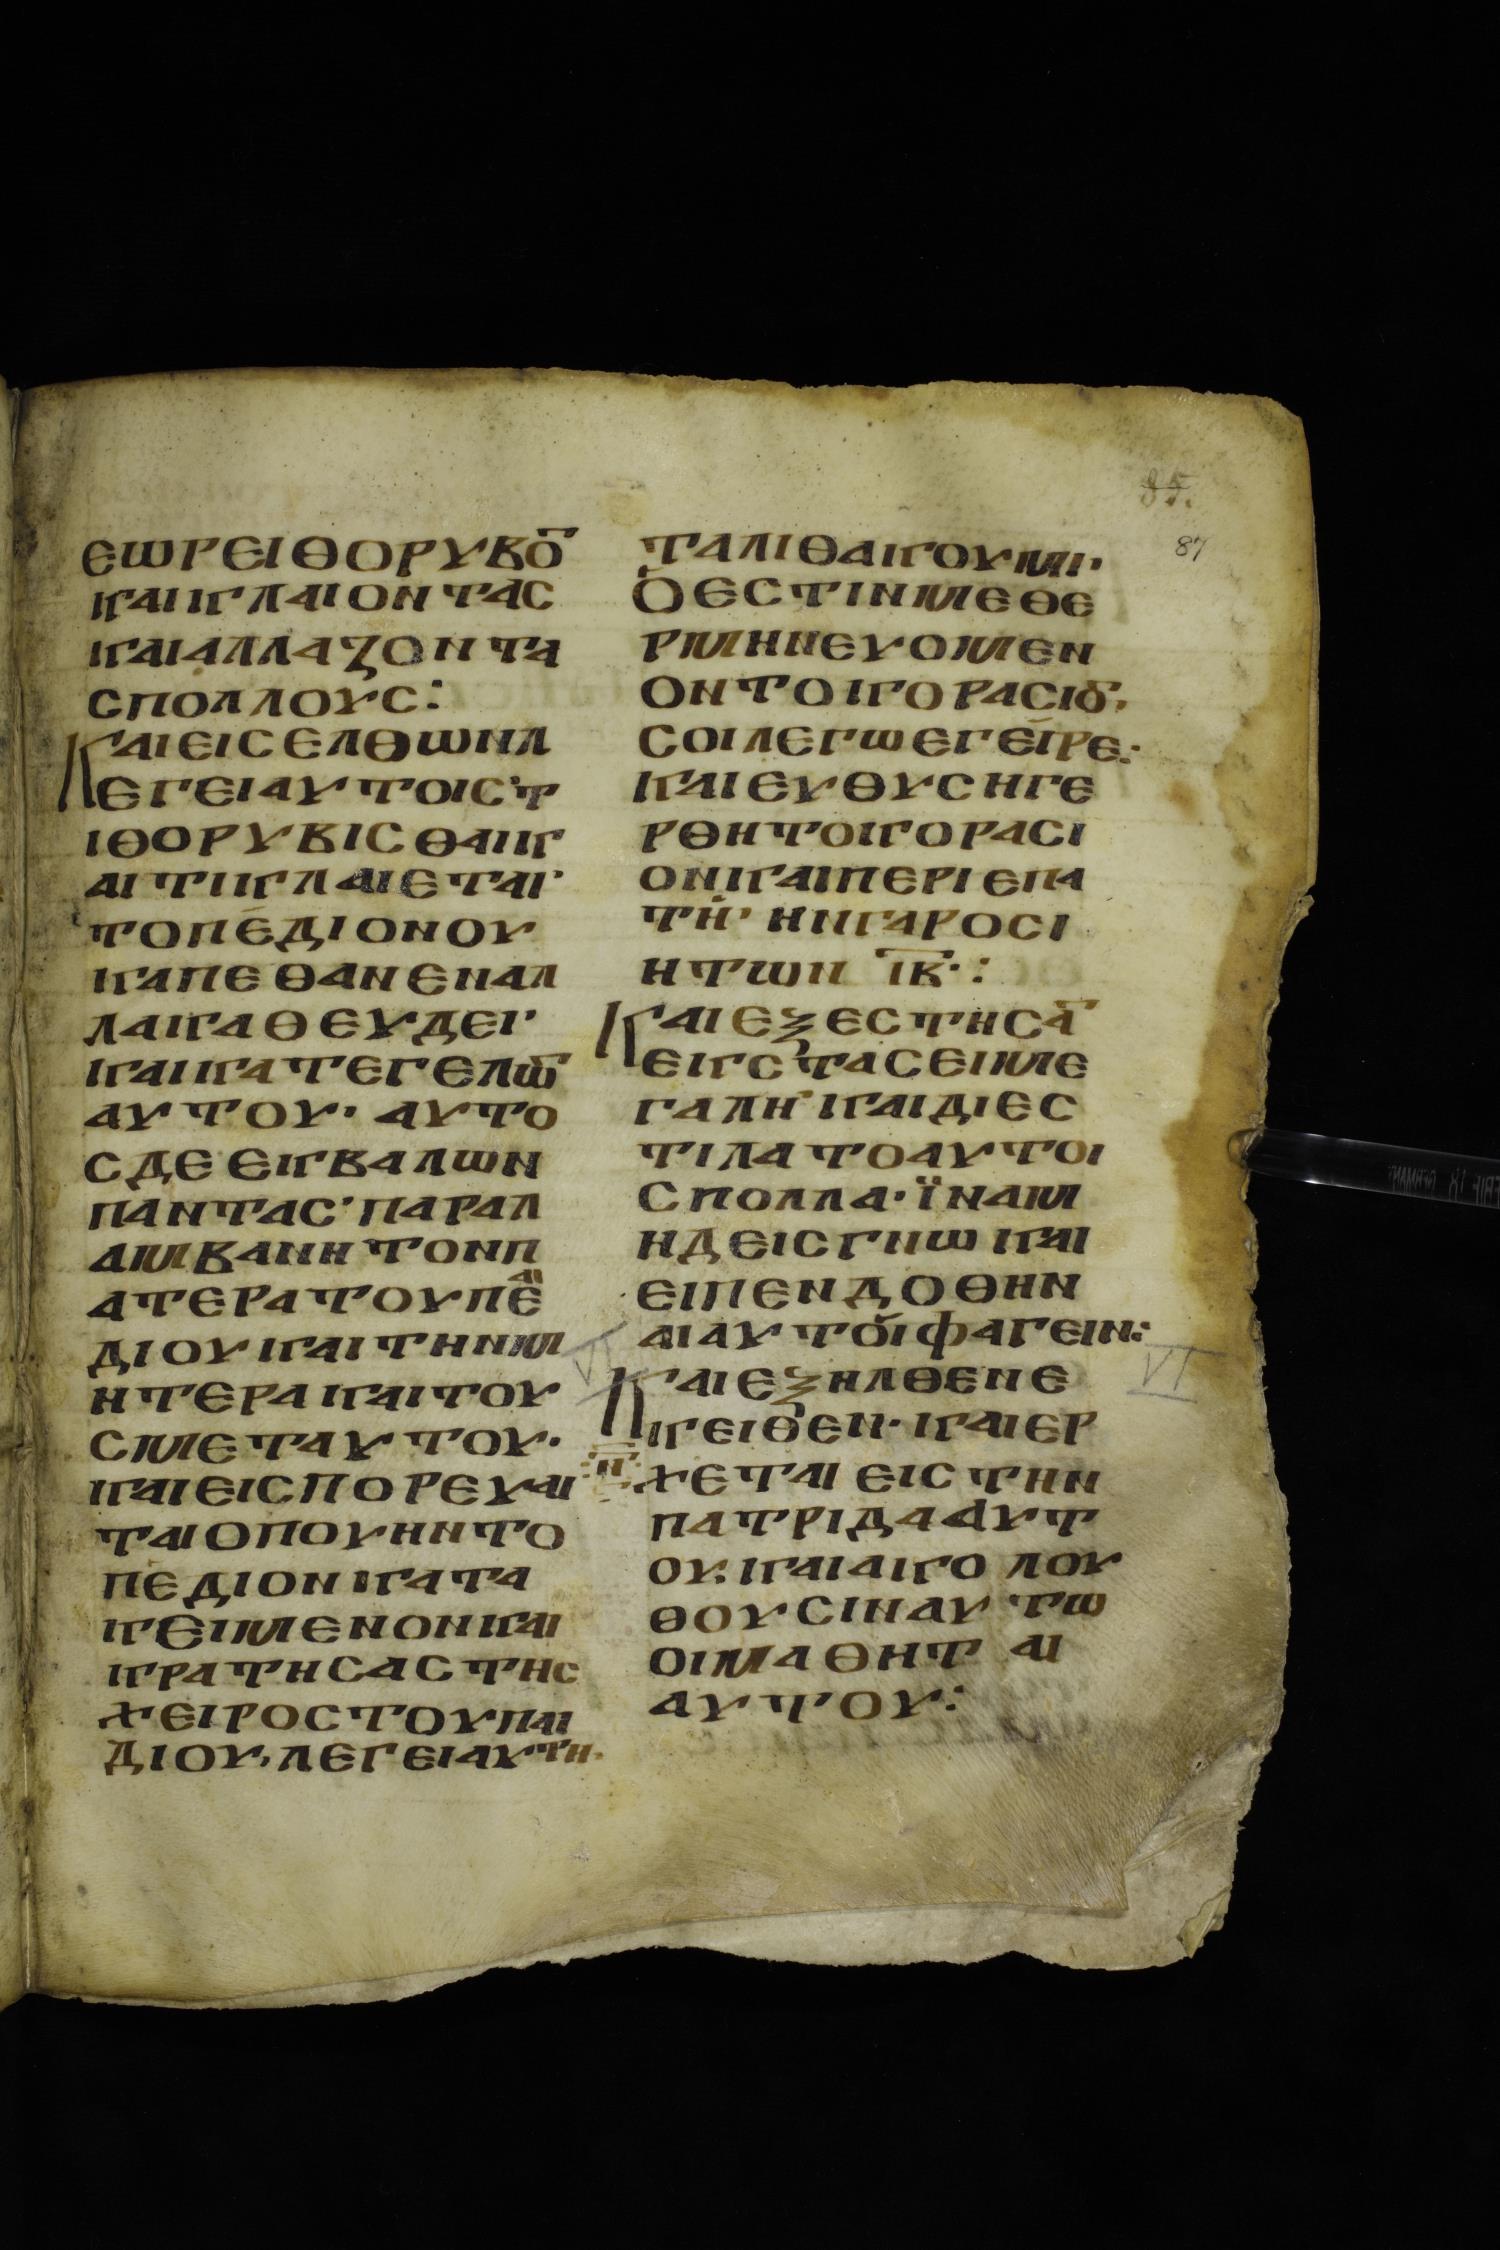 85.
87
ΕΩΡΕΙΘΟΡΥΒΟ̅
ΚΑΙΚΛΑΙΟΝΤΑС
ΚΑΙΑΛΛΑΖΟΝΤΑ
СΠΟΛΛΟΥС:
ΚΑΙΕΙСΕΛΘΩΝΛ
ΕΓΕΙΑΥΤΟΙС·Τ
ΙΘΟΡΥΒΙСΘΑΙΚ
ΑΙΤΙΚΛΑΙΕΤΑΙ·
ΤΟΠΕΔΙΟΝΟΥ
ΚΑΠΕΘΑΝΕΝΑΛ
ΛΑΚΑΘΕΥΔΕΙ·
ΚΑΙΚΑΤΕΓΕΛΩ̅
ΑΥΤΟΥ· ΑΥΤΟ
СΔΕΕΚΒΑΛΩΝ
ΠΑΝΤΑС·ΠΑΡΑΛ
ΑΜΒΑΝΗΤΟΝΠ
ΑΤΕΡΑΤΟΥΠΕ
ΑΙ
ΔΙΟΥΚΑΙΤΗΝΜ
ΗΤΕΡΑΚΑΙΤΟΥ
СΜΕΤΑΥΤΟΥ·
ΚΑΙΕΙСΠΟΡΕΥΑΙ
ΤΑΙΟΠΟΥΗΝΤΟ
ΠΕΔΙΟΝΚΑΤΑ
ΚΕΙΜΕΝΟΝΚΑΙ
ΚΡΑΤΗСΑСΤΗС
ΧΕΙΡΟСΤΟΥΠΑΙ
ΔΙΟΥ,ΛΕΓΕΙΑΥΤΗ·
ΤΑΛΙΘΑΚΟΥΜΙ·
ΟΕСΤΙΝΜΕΘΕ
ΡΜΗΝΕΥΟΜΕΝ
ΟΝΤΟΚΟΡΑСΙΟ̅,
СΟΙΛΕΓΩΕΓΕΙΡΕ:·
ΚΑΙΕΥΘΥСΗΓΕ
ΡΘΗΤΟΚΟΡΑСΙ
ΟΝΚΑΙΠΕΡΙΕΠΑ
ΤΗ· ΗΝΓΑΡΟСΙ
ΗΤΩΝ Ι̅Β̅·:
ΚΑΙΕΞΕСΤΗСΑ̅
ΕΚСΤΑСΕΙΜΕ
ΓΑΛΗ·ΚΑΙΔΙΕС
ΤΙΛΑΤΟΑΥΤΟΙ
СΠΟΛΛΑ·ΪΝΑΜ
ΗΔΕΙСΓΝΩΚΑΙ
ΕΙΠΕΝΔΟΘΗΝ
ΑΙΑΥΤΟΙΦΑΓΕΙΝ:·
VI
VI
ΚΑΙΕΞΗΛΘΕΝΕ
ΚΕΙΘΕΝ·ΚΑΙΕΡ
ΧΕΤΑΙΕΙСΤΗΝ
ΠΑΤΡΙΔΑΑΥΤ
ΟΥ:ΚΑΙΑΚΟΛΟΥ
ΘΟΥСΙΝΑΥΤΩ
ΟΙΜΑΘΗΤΑΙ
ΑΥΤΟΥ: